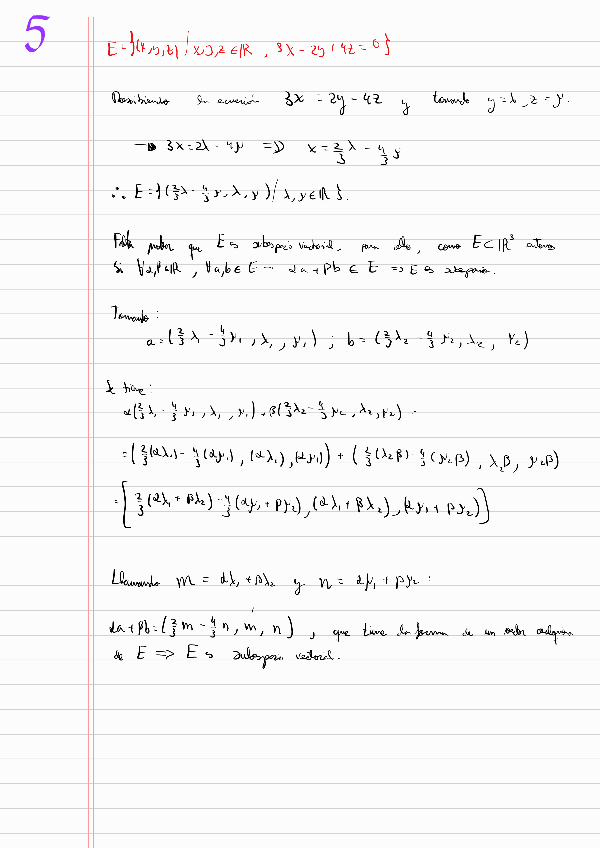 5
E = {(x,y,z) / x,y,z ∈ ℝ , 3x - 2y + 4z = 0}
la ecuación 3x = 2y - 4z y tomando y = λ, z = μ.
→ 3x = 2λ - 4μ => x = 2/3 λ - 4/3 μ
∴ E = {(2/3 λ - 4/3 μ, λ, μ) / λ, μ ∈ ℝ}.
probar que E es subespacio vectorial, para ello, como E ⊂ ℝ³ entonces
Si ∀α,β ∈ ℝ, ∀a,b ∈ E αa + βb ∈ E => E es subespacio.
Tomando:
a = (2/3 λ - 4/3 μ₁, λ₁, μ₁) ; b = (2/3 λ₂ - 4/3 μ₂, λ₂, μ₂)
Se tiene:
α(2/3 λ₁ - 4/3 μ₁, λ₁, μ₁) + β(2/3 λ₂ - 4/3 μ₂, λ₂, μ₂)
= (2/3 (αλ₁) - 4/3 (αμ₁), (αλ₁), (αμ₁)) + (2/3 (λ₂β) - 4/3 (μ₂β), λ₂β, μ₂β)
= [2/3 (αλ₁ + βλ₂) - 4/3 (αμ₁ + βμ₂), (αλ₁ + βλ₂), (αμ₁ + βμ₂)]
Llamando m = αλ₁ + βλ₂ y n = αμ₁ + βμ₂ :
αa + βb = (2/3 m - 4/3 n, m, n) , que tiene la forma de un vector cualquiera
de E => E es subespacio vectorial.